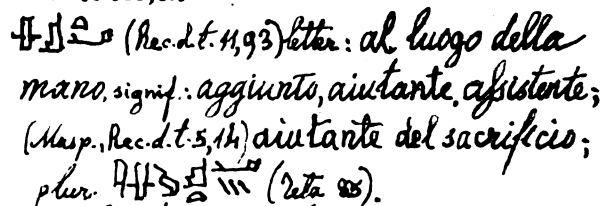 (Rec. d. t. 11, 93) letter: al luogo della
mano, signif.: aggiunto, aiutante, assistente;
(Masp., Rec. d. t. 5, 14) aiutante del sacrificio;
plur. (Teta).